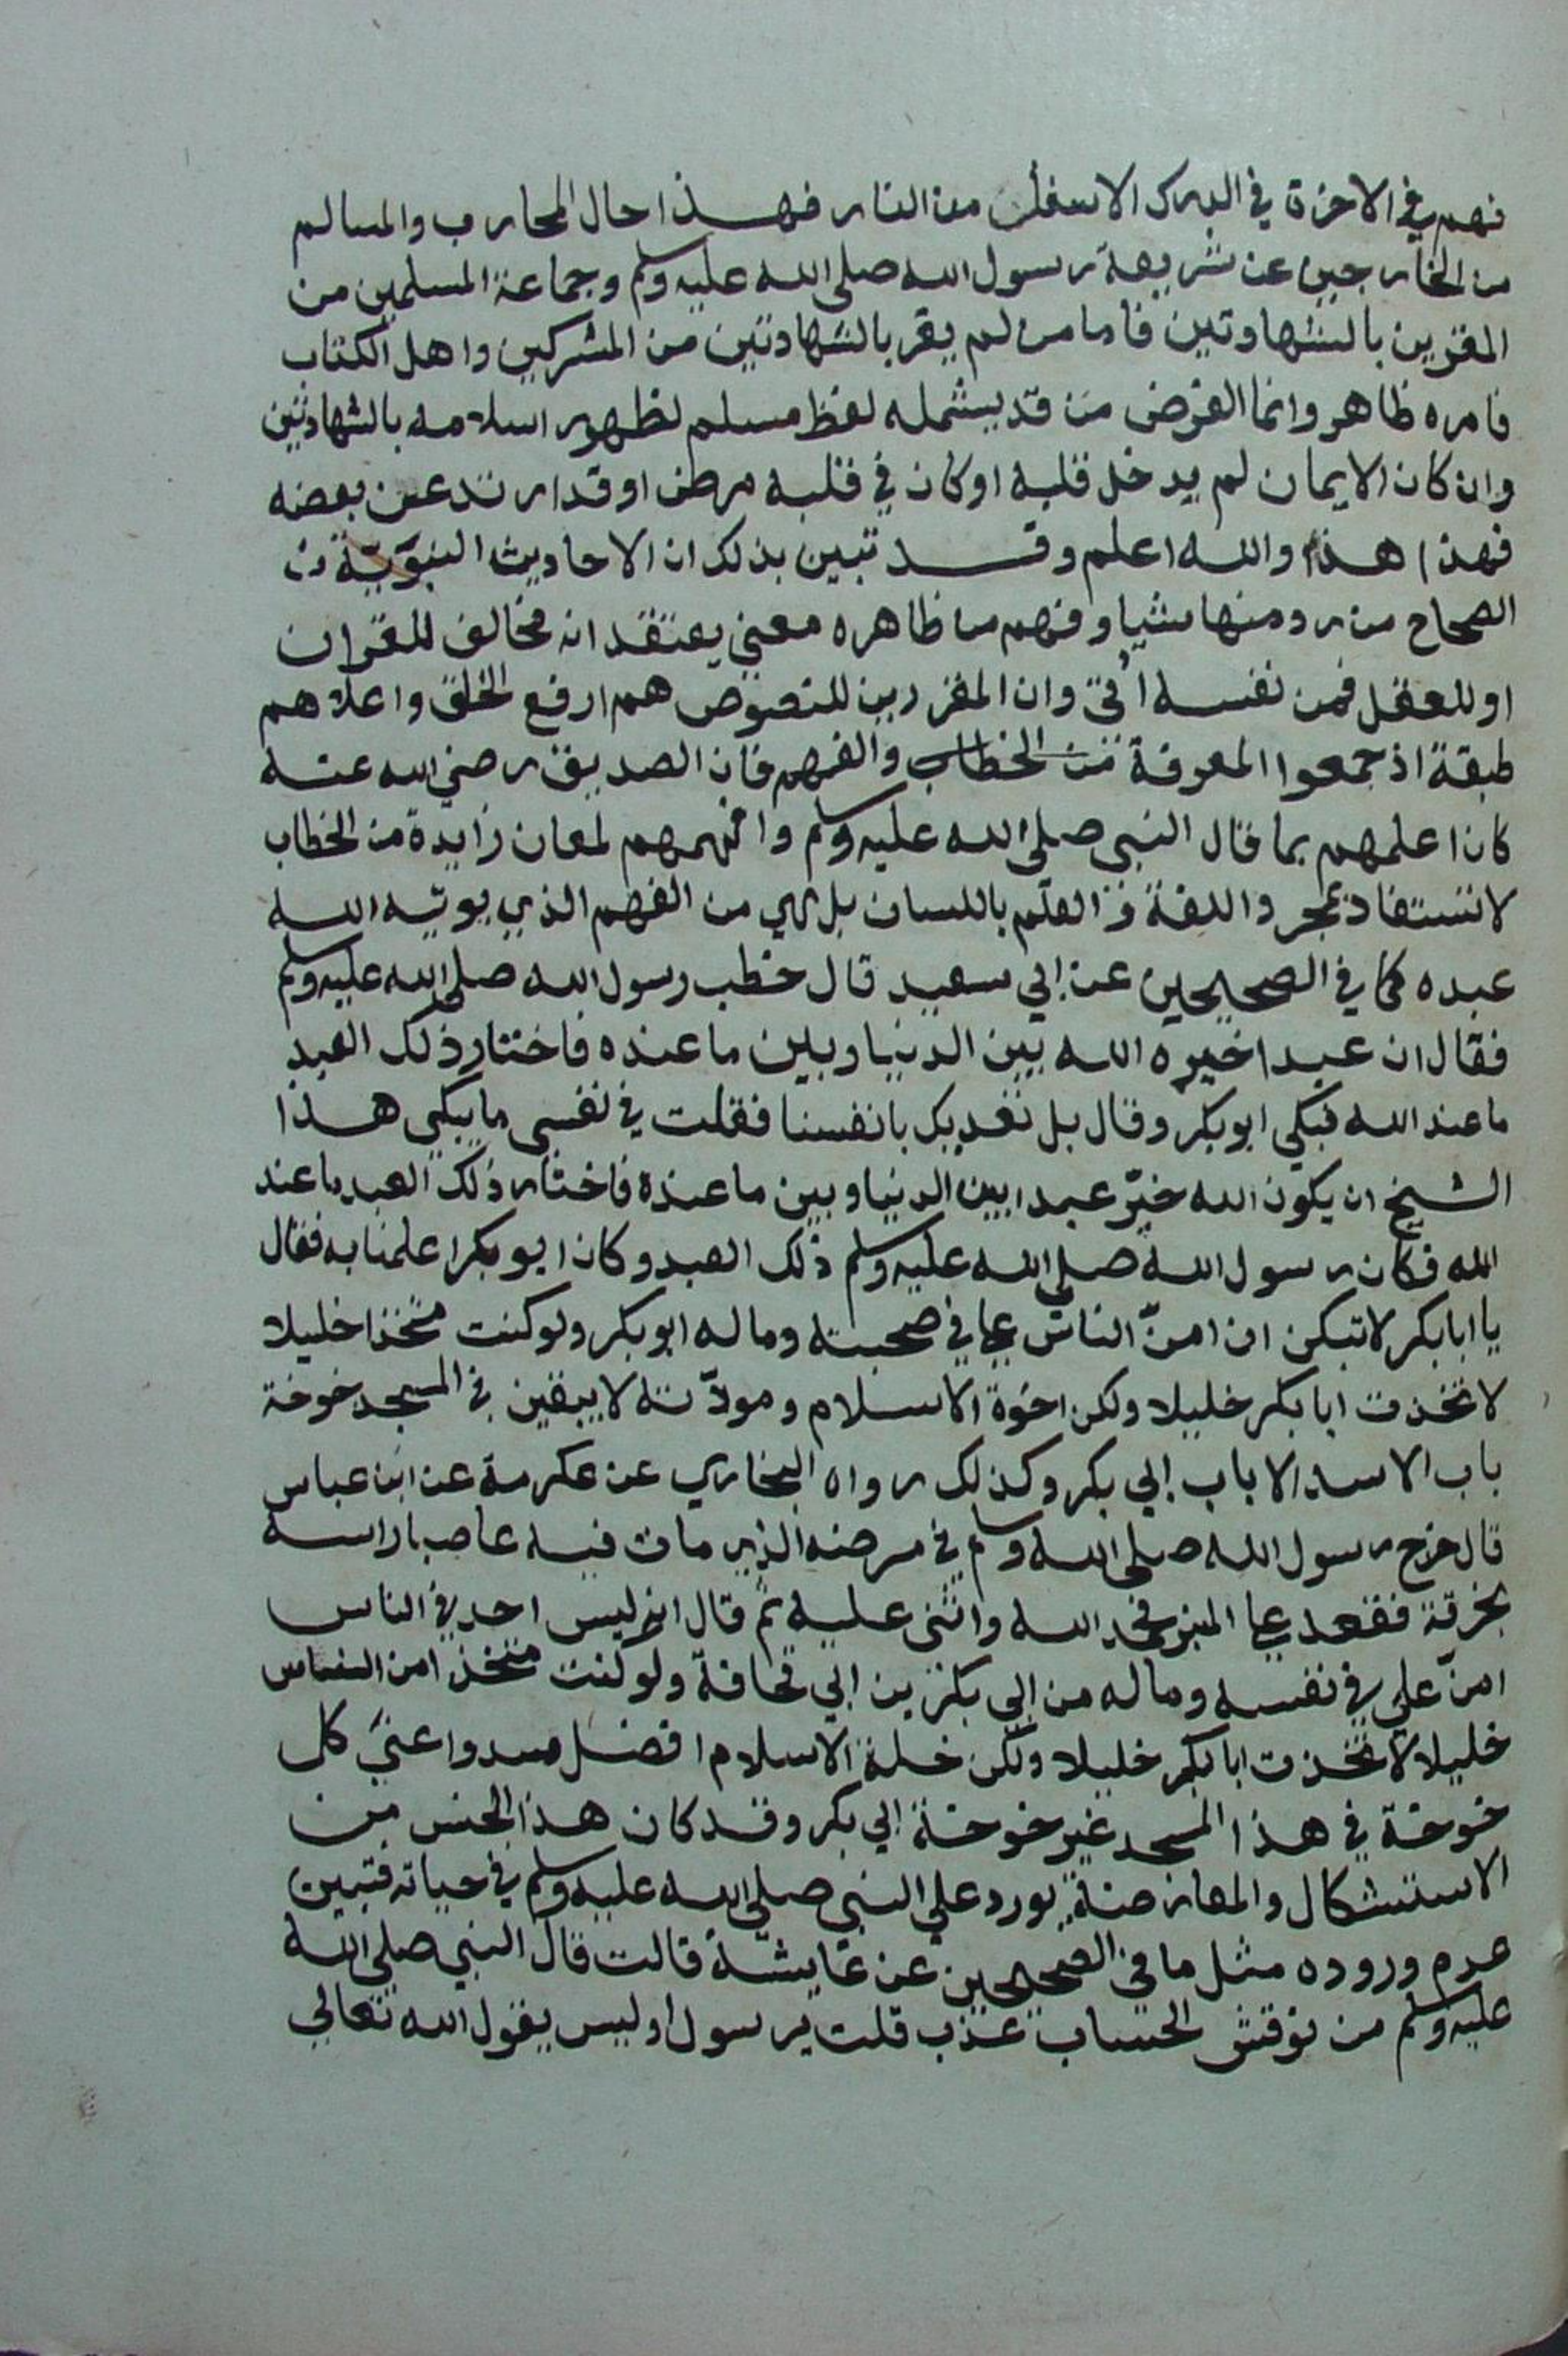 فهم في الاخرة في الدرك الاسفل من النار فهذا حال المحارب والمسالم
من الخارجين عن شريعة رسول الله صلى الله عليه وسلم وجماعة المسلمين من
المقرين بالشهادتين فاما من لم يقر بالشهادتين من المشركين واهل الكتاب
فامره ظاهر وانما الغرض من قد يشمله لفظ مسلم لظهور اسلامه بالشهادتين
وان كان الايمان لم يدخل قلبه او كان في قلبه مرض او قد ارتد عن بعضه
فهذا هذا والله اعلم وقد تبين بذلك ان الاحاديث النبوية
الصحاح من رد منها شيا وفهم من ظاهره معنى يعتقد انه مخالف للقران
او للعقل فمن نفسه أُتي وان المقررين للنصوص هم ارفع الخلق واعلاهم
طبقة اذ جمعوا المعرفة من الخطاب والفهم فان الصديق رضي الله عنه
كان اعلمهم بما قال النبي صلى الله عليه وسلم وافهمهم لمعان زايدة من الخطاب
لا تستفاد بمجرد اللغة و العلم باللسان بل هي من الفهم الذي يوتيه الله
عبده كما في الصحيحين عن ابي سعيد قال خطب رسول الله صلى الله عليه وسلم
فقال ان عبدا خيره الله بين الدنيا وبين ما عنده فاختار ذلك العبد
ما عند الله فبكى ابو بكر وقال بل نفديك بانفسنا فقلت في نفسي ما يبكي هذا
الشيخ ان يكون الله خيّر عبدا بين الدنيا وبين ما عنده فاختار ذلك العبد ما عند
الله فكان رسول الله صلى الله عليه وسلم ذلك العبد وكان ابو بكر اعلمنا به فقال
يا ابا بكر لا تبكن ان امنّ الناس علي في صحبته وماله ابو بكر ولو كنت متخذا خليلا
لاتخذت ابا بكر خليلا ولكن اخوة الاسلام ومودّته لا يبقين في المسجد خوخة
باب الا سد الا باب ابي بكر وكذلك رواه البخاري عن عكرمة عن ابن عباس
قال خرج رسول الله صلى الله وسلم في مرضه الذي مات فيه عاصبا راسه
بخرقة فقعد على المنبر فحمد الله واثنى عليه ثم قال انه ليس احد في الناس
امنّ علي في نفسه وماله من ابي بكر بن ابي قحافة ولو كنت متخذا من الناس
خليلا لاتخذت ابا بكر خليلا ولكن خلة الاسلام افضل سدوا عني كل
خوخة في هذا المسجد غير خوخة ابي بكر وقد كان هذا الجنس من
الاستشكال والمعارضة يورد على النبي صلى الله عليه وسلم في حياته فتبين
عدم وروده مثل ما في الصحيحين عن عايشة قالت قال النبي صلى الله
عليه وسلم من نوقش الحساب عذب قلت يرسول اوليس يقول الله تعالى